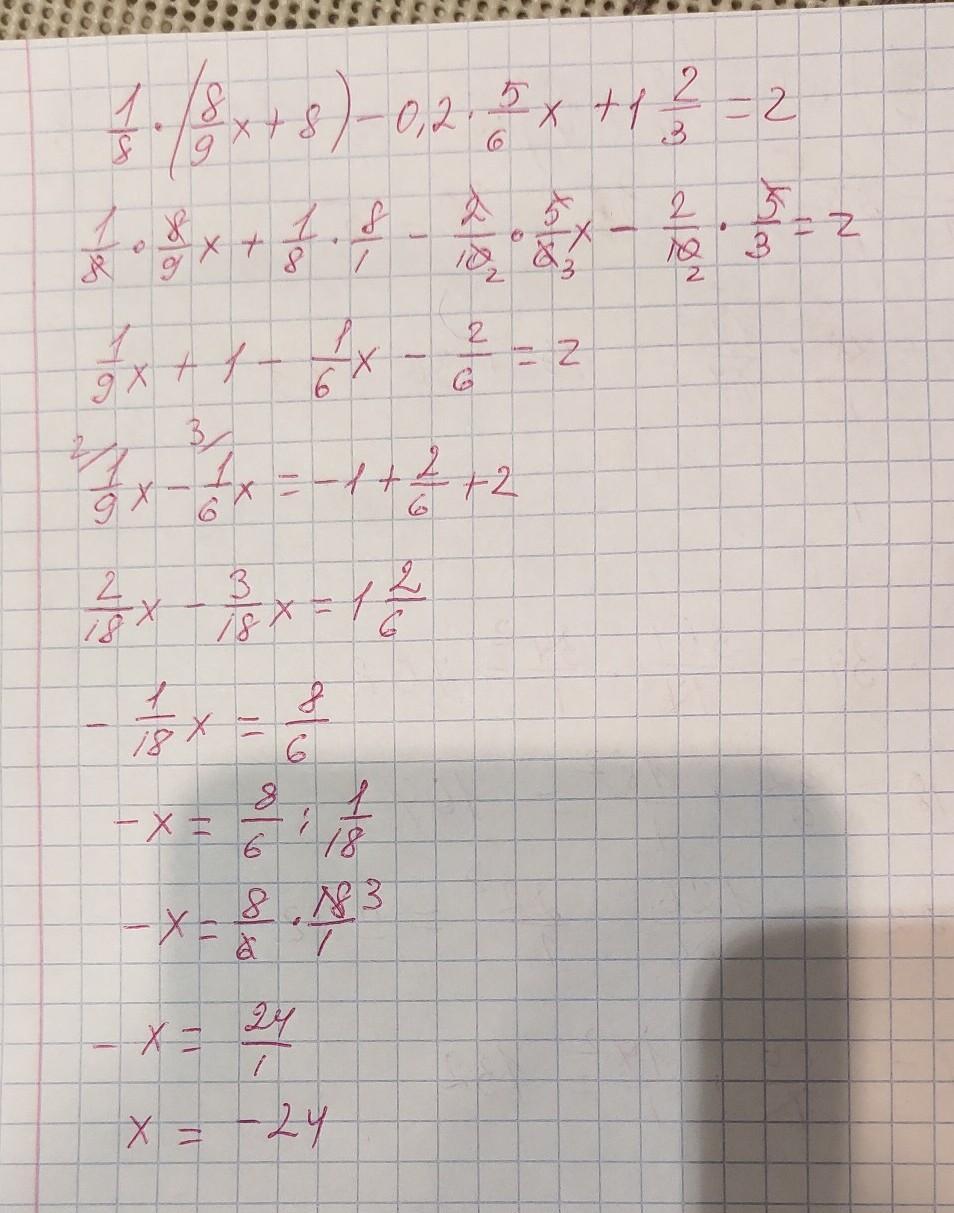 1/8 · (8/9 x + 8) - 0,2 · 5/6 x + 1 2/3 = 2
1/8 · 8/9 x + 1/8 · 8/1 - 2/10 2 · 5/6 3 x - 2/10 2 · 5/3 = 2
1/9 x + 1 - 1/6 x - 2/6 = 2
2/ 1/9 x - 3/ 1/6 x = -1 + 2/6 + 2
2/18 x - 3/18 x = 1 2/6
- 1/18 x = 8/6
-x = 8/6 : 1/18
-x = 8/6 · 18/1 3
-x = 24/1
x = -24